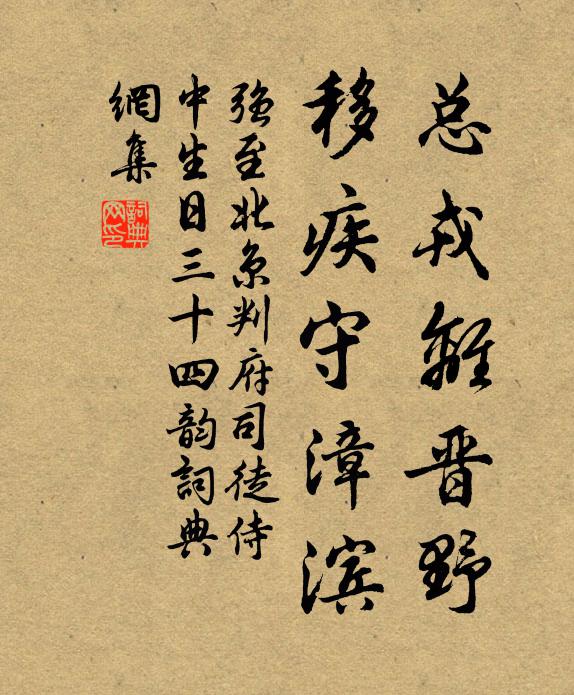 总戎雞晋野
移疾守漳滨
强至北京判府司徒侍
中生日三十四韵詞典
網集
詞典
网印